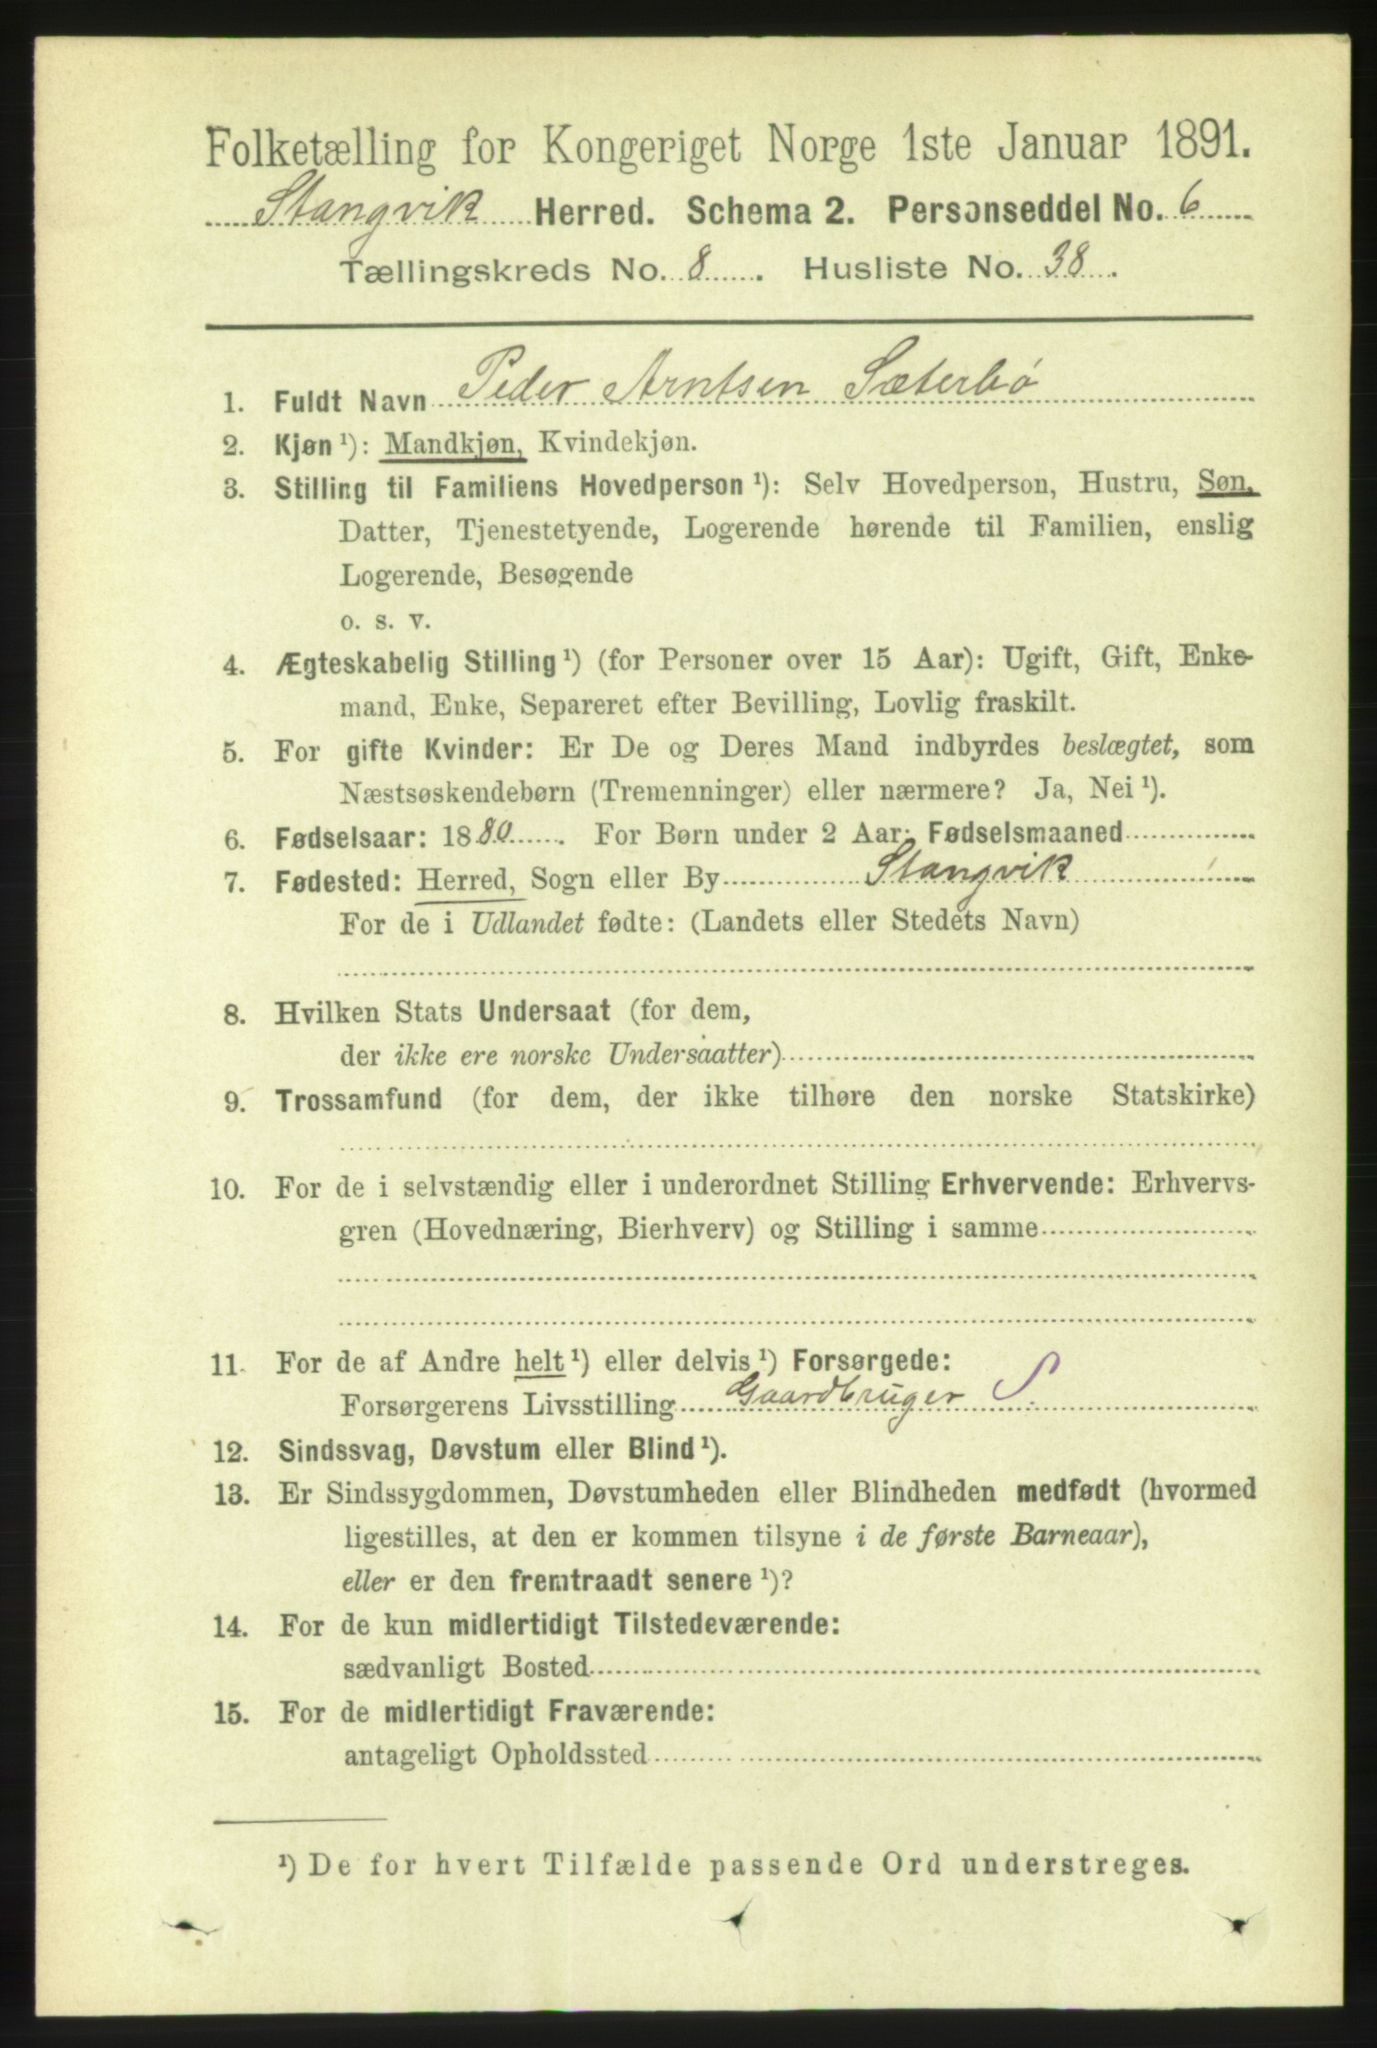 Folketælling for Kongeriget Norge 1ste Januar 1891.
Stangvik Herred. Schema 2. Personseddel No. 6
Tællingskreds No. 8. Husliste No. 38.
1. Fuldt Navn Peder Arntsen Sæterbø
2. Kjøn ¹): Mandkjøn, Kvindekjøn.
3. Stilling til Familiens Hovedperson ¹): Selv Hovedperson, Hustru, Søn,
Datter, Tjenestetyende, Logerende hørende til Familien, enslig
Logerende, Besøgende
o. s. v.
4. Ægteskabelig Stilling ¹) (for Personer over 15 Aar): Ugift, Gift, Enke-
mand, Enke, Separeret efter Bevilling, Lovlig fraskilt.
5. For gifte Kvinder: Er De og Deres Mand indbyrdes beslægtet, som
Næstsøskendebørn (Tremenninger) eller nærmere? Ja, Nei ¹).
6. Fødselsaar: 1880. For Børn under 2 Aar: Fødselsmaaned
7. Fødested: Herred, Sogn eller By Stangvik
For de i Udlandet fødte: (Landets eller Stedets Navn)
8. Hvilken Stats Undersaat (for dem,
der ikke ere norske Undersaatter)
9. Trossamfund (for dem, der ikke tilhøre den norske Statskirke)
10. For de i selvstændig eller i underordnet Stilling Erhvervende: Erhvervs-
gren (Hovednæring, Bierhverv) og Stilling i samme
11. For de af Andre helt ¹) eller delvis ¹) Forsørgede:
Forsørgerens Livsstilling Gaardbruger S
12. Sindssvag, Døvstum eller Blind ¹).
13. Er Sindssygdommen, Døvstumheden eller Blindheden medfødt (hvormed
ligestilles, at den er kommen tilsyne i de første Barneaar),
eller er den fremtraadt senere ¹)?
14. For de kun midlertidigt Tilstedeværende:
sædvanligt Bosted
15. For de midlertidigt Fraværende:
antageligt Opholdssted
¹) De for hvert Tilfælde passende Ord understreges.